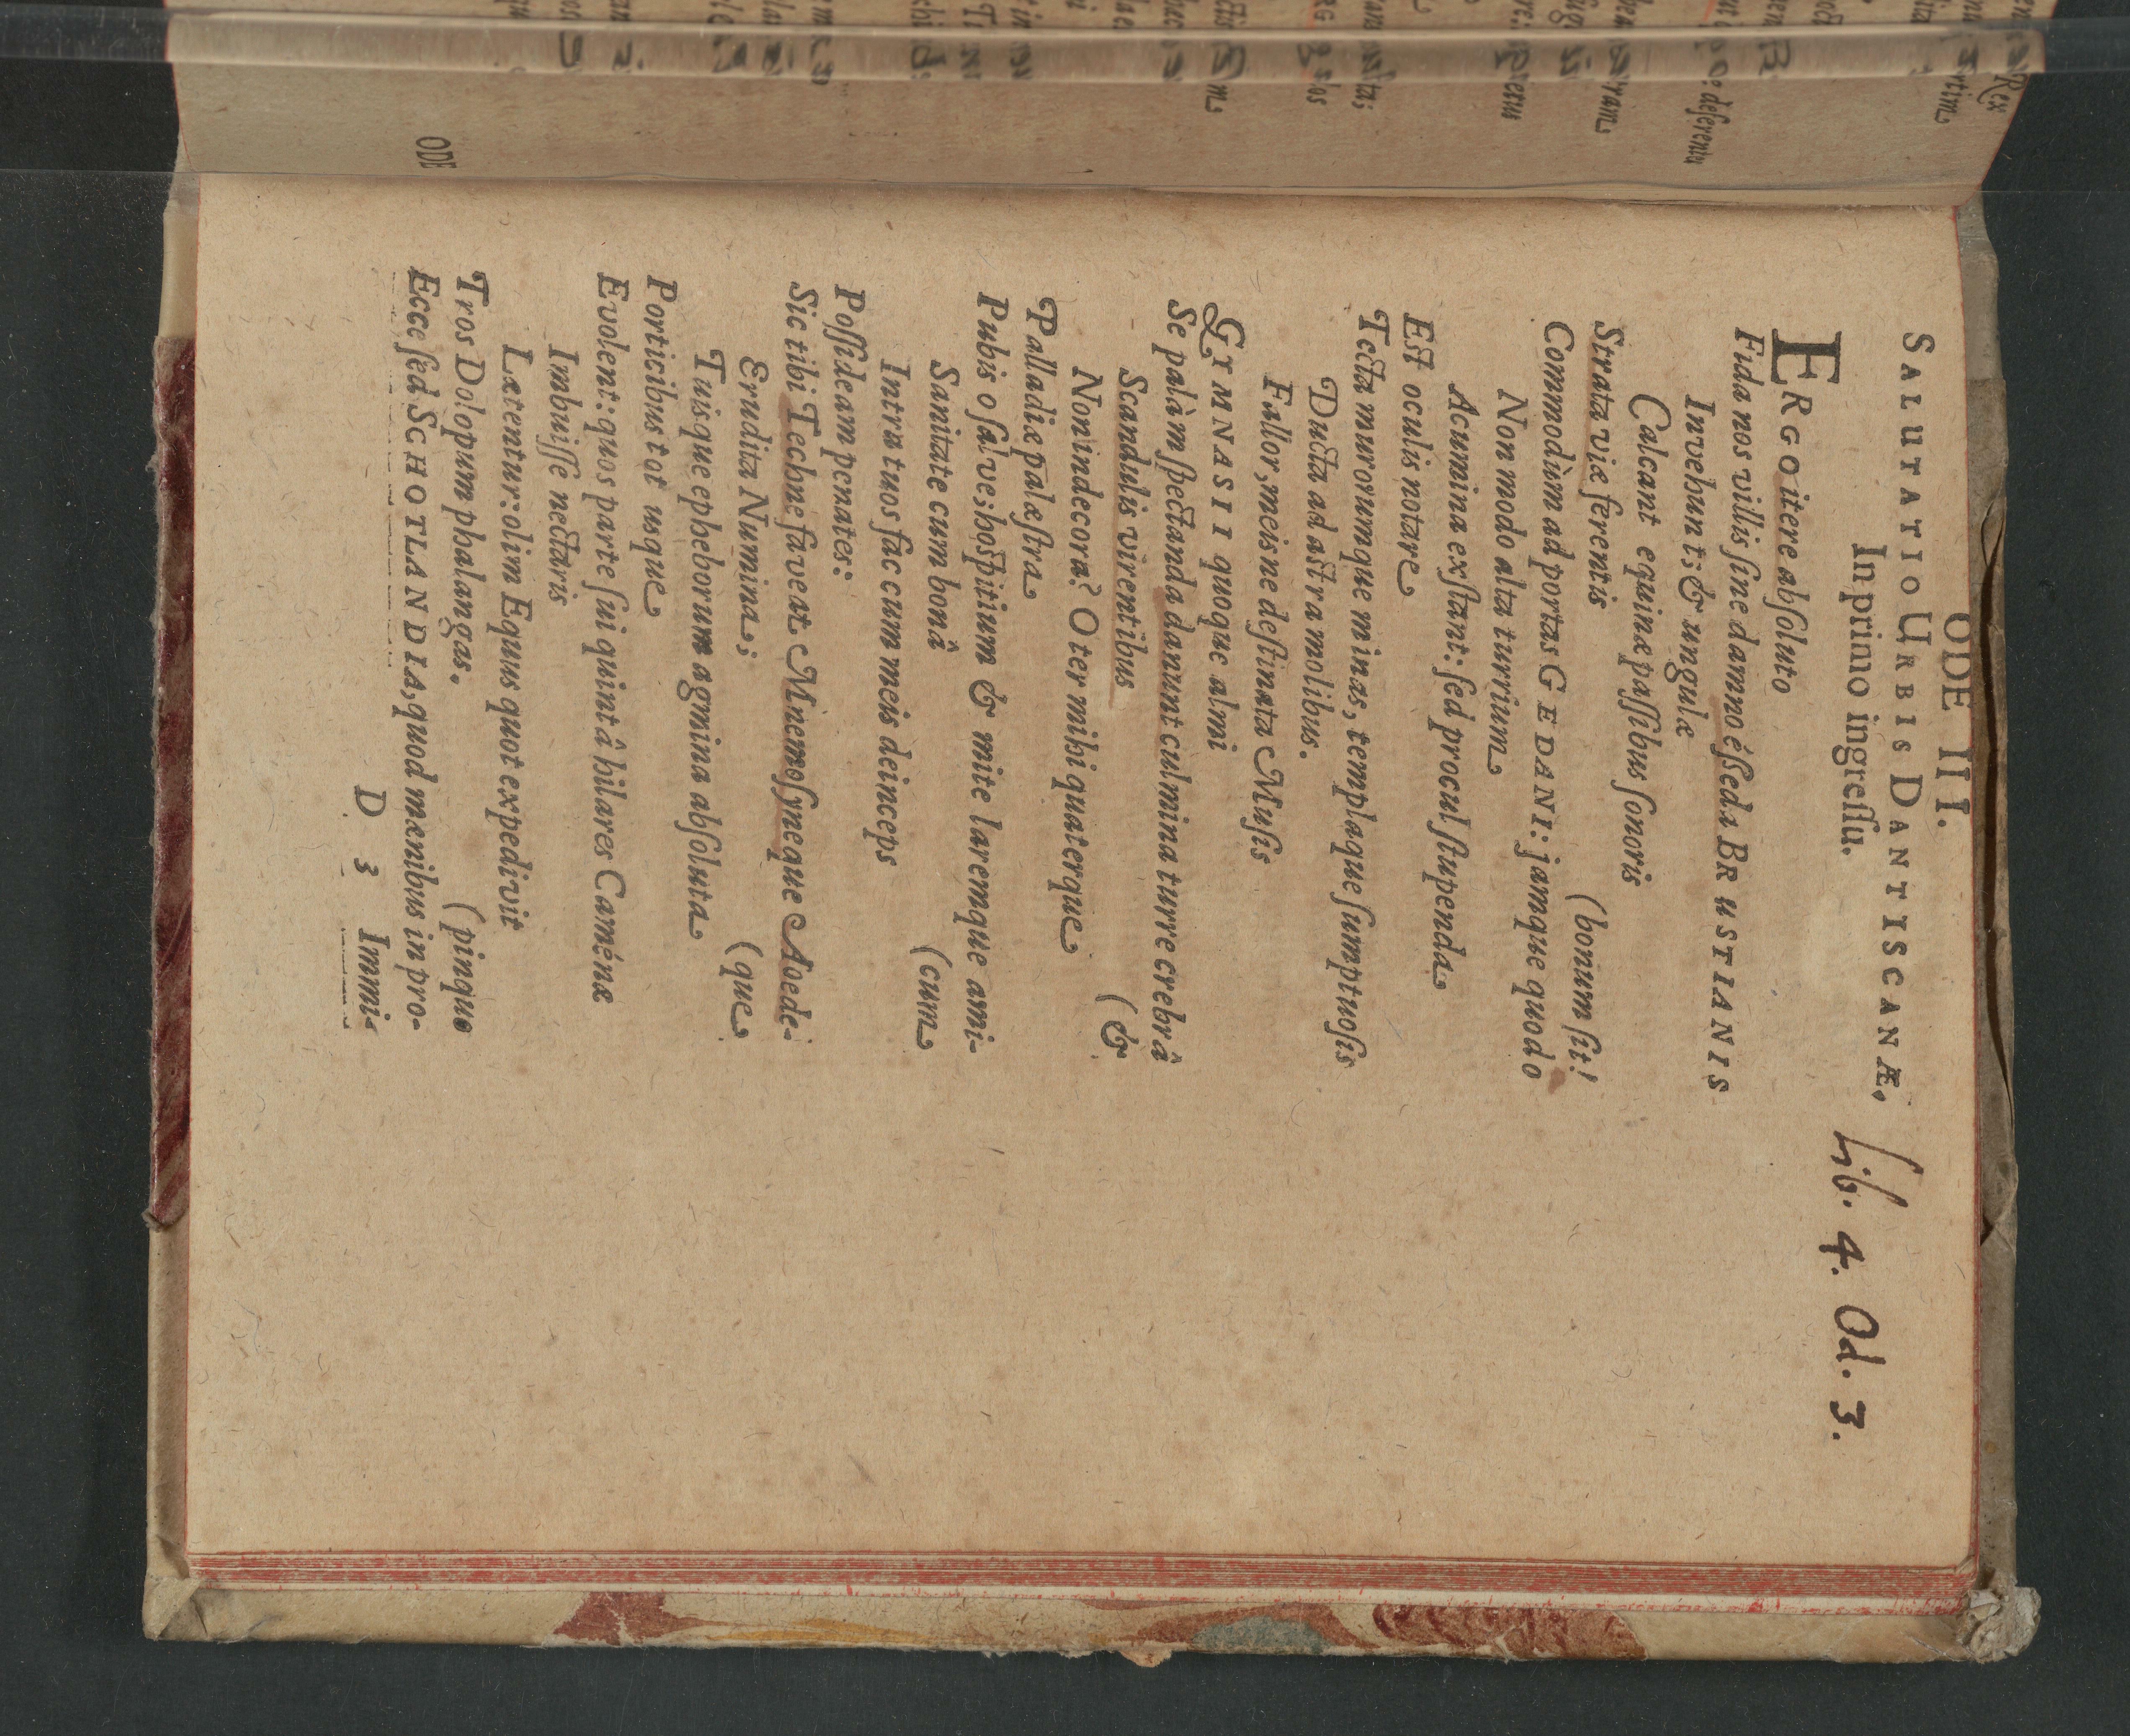 ODE III.
SALUTATIO URBIS DANTISCANÆ,
In primo ingreſſu.
Lib. 4. Od. 3.
ERGO itere abſoluto
Fida nos villis ſine damno éſſeda BRUSTIANIS
Invehunt: & ungulæ
Calcant equinæ paſſibus ſonoris
Strata viæ ferentis
(bonum ſit!
Commodùm ad portas GEDANI: jamque quod o
Non modo alta turrium
Acumina exſtant: ſed procul ſtupenda
Eſt oculis notare
Tecta murorumque minas, templaque ſumptuoſis
Ducta ad aſtra molibus.
Fallor, meisne deſtinata Muſis
GYMNASII quoque almi
Se palàm ſpectanda danunt culmina turre crebrâ
Scandulis virentibus
(&
Non indecora? O ter mihi quaterque
Palladiæ palæſtra
Pubis o ſalve; hoſpitium & mite laremque ami-
Sanitate cum bonâ
(cum
Intra tuos fac cum meis deinceps
Poſſideam penates:
Sic tibi Techne faveat Mnemoſyneque Aoede-
Erudita Numina;
(que
Tuisque epheborum agmina abſoluta
Porticibus tot usque
Evolent: quos parte ſui quintâ hilares Caménæ
Imbuiſſe nectaris
Lætentur: olim Equus quot expedivit
Tros Dolopum phalangas.
(pinquo
Ecce ſed SCHOTLANDIA, quod mœnibus in pro-
D 3 Immi-
ODE